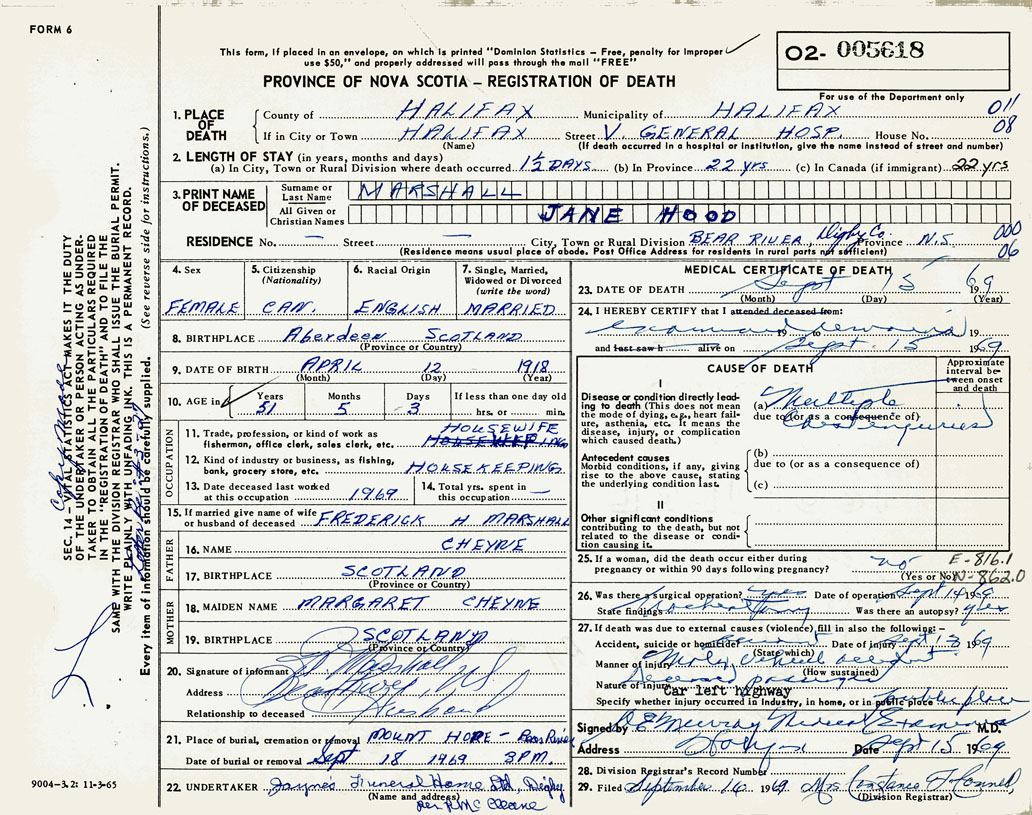 FORM 6
This form, if placed in an envelope, on which is printed "Dominion Statistics – Free, penalty for improper
use $50," and properly addressed will pass through the mail "FREE"
O2- 005618
PROVINCE OF NOVA SCOTIA – REGISTRATION OF DEATH
For use of the Department only
1. PLACE OF DEATH
County of HALIFAX Municipality of HALIFAX 011
If in City or Town HALIFAX Street V. GENERAL HOSP. House No. 08
(Name) (If death occurred in a hospital or institution, give the name instead of street and number)
2. LENGTH OF STAY (in years, months and days)
(a) In City, Town or Rural Division where death occurred 1½ DAYS (b) In Province 22 yrs (c) In Canada (if immigrant) 22 yrs
3. PRINT NAME OF DECEASED
Surname or Last Name MARSHALL
All Given or Christian Names JANE HOOD
RESIDENCE No. — Street — City, Town or Rural Division BEAR RIVER, Digby Co. Province N.S. 000
(Residence means usual place of abode. Post Office Address for residents in rural parts not sufficient) 06
4. Sex
FEMALE
5. Citizenship
(Nationality)
CAN.
6. Racial Origin
ENGLISH
7. Single, Married, Widowed or Divorced
(write the word)
MARRIED
8. BIRTHPLACE Aberdeen SCOTLAND
(Province or Country)
9. DATE OF BIRTH APRIL 12 1918
(Month) (Day) (Year)
10. AGE in Years Months Days If less than one day old
51 5 3 hrs. or min.
OCCUPATION
11. Trade, profession, or kind of work as HOUSEWIFE
fishermon, office clerk, sales clerk, etc.
12. Kind of industry or business, as fishing,
bank, grocery store, etc. HOUSEKEEPING
13. Date deceased last worked
at this occupation 1969
14. Total yrs. spent in
this occupation —
15. If married give name of wife
or husband of deceased FREDERICK H MARSHALL
FATHER
16. NAME CHEYNE
17. BIRTHPLACE SCOTLAND
(Province or Country)
MOTHER
18. MAIDEN NAME MARGARET CHEYNE
19. BIRTHPLACE SCOTLAND
(Province or Country)
20. Signature of informant
Address Bear River, N.S.
Relationship to deceased Husband
21. Place of burial, cremation or removal MOUNT HOPE – Bear River
Date of burial or removal Sept 18 1969 3PM.
22. UNDERTAKER Jaynes Funeral Home Ltd Digby
(Name and address)
per
MEDICAL CERTIFICATE OF DEATH
23. DATE OF DEATH Sept 15 1969
(Month) (Day) (Year)
24. I HEREBY CERTIFY that I attended deceased from:
examined remains 19 to 19
and last saw h alive on Sept. 15 1969
CAUSE OF DEATH
Approximate interval between onset and death
I
Disease or condition directly leading to death (This does not mean the mode of dying, e.g., heart failure, asthenia, etc. It means the disease, injury, or complication which caused death.)
(a) Multiple
due to (or as a consequence of)
Chest injuries
Antecedent causes
Morbid conditions, if any, giving rise to the above cause, stating the underlying condition last.
(b)
due to (or as a consequence of)
(c)
II
Other significant conditions
contributing to the death, but not related to the disease or condition causing it.
25. If a woman, did the death occur either during
pregnancy or within 90 days following pregnancy? no E-816.1
(Yes or No) N-862.0
26. Was there a surgical operation? yes Date of operation Sept 14 1969
State findings Was there an autopsy? yes
27. If death was due to external causes (violence) fill in also the following:–
Accident, suicide or homicide? accident Date of injury Sept 13 1969
(State which)
Manner of injury Motor vehicle accident
(How sustained)
Nature of injury Deceased passenger
Car left highway
Specify whether injury occurred in industry, in home, or in public place public place
Signed by Murray Medical Examiner M.D.
Address Date Sept 15 1969
28. Division Registrar's Record Number
29. Filed September 16 1969 Mrs Constance
(Division Registrar)
SEC. 14 – VITAL STATISTICS ACT MAKES IT THE DUTY
OF THE UNDERTAKER OR PERSON ACTING AS UNDER-
TAKER TO OBTAIN ALL THE PARTICULARS REQUIRED
IN THE "REGISTRATION OF DEATH" AND TO FILE THE
SAME WITH THE DIVISION REGISTRAR WHO SHALL ISSUE THE BURIAL PERMIT.
WRITE PLAINLY WITH UNFADING INK. THIS IS A PERMANENT RECORD.
Every item of information should be carefully supplied. (See reverse side for instructions.)
9004–3.2: 11-3-65